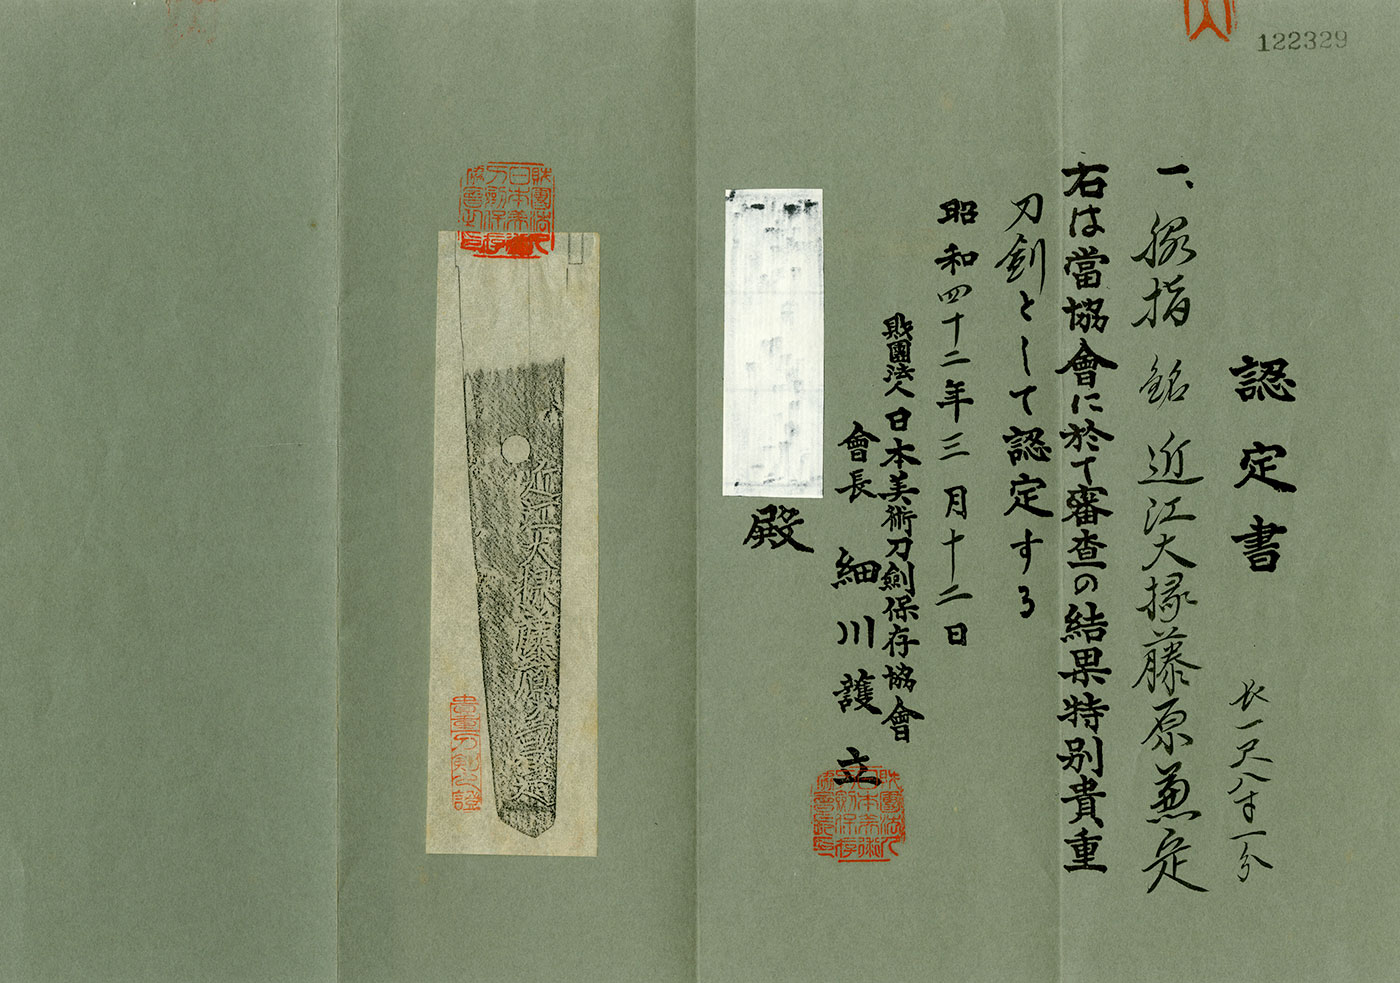 122329
認定書
一、脇指 銘 近江大掾藤原兼定
長一尺八寸一分
右は當協會に於て審査の結果特別貴重
刀劍として認定する
昭和四十二年三月十二日
財團法人日本美術刀劍保存協會
會長 細川護立
殿
財團法人日本美術刀劍保存協會長印
財團法人日本美術刀劍保存協會之印
近江大掾藤原
貴重刀劍之證